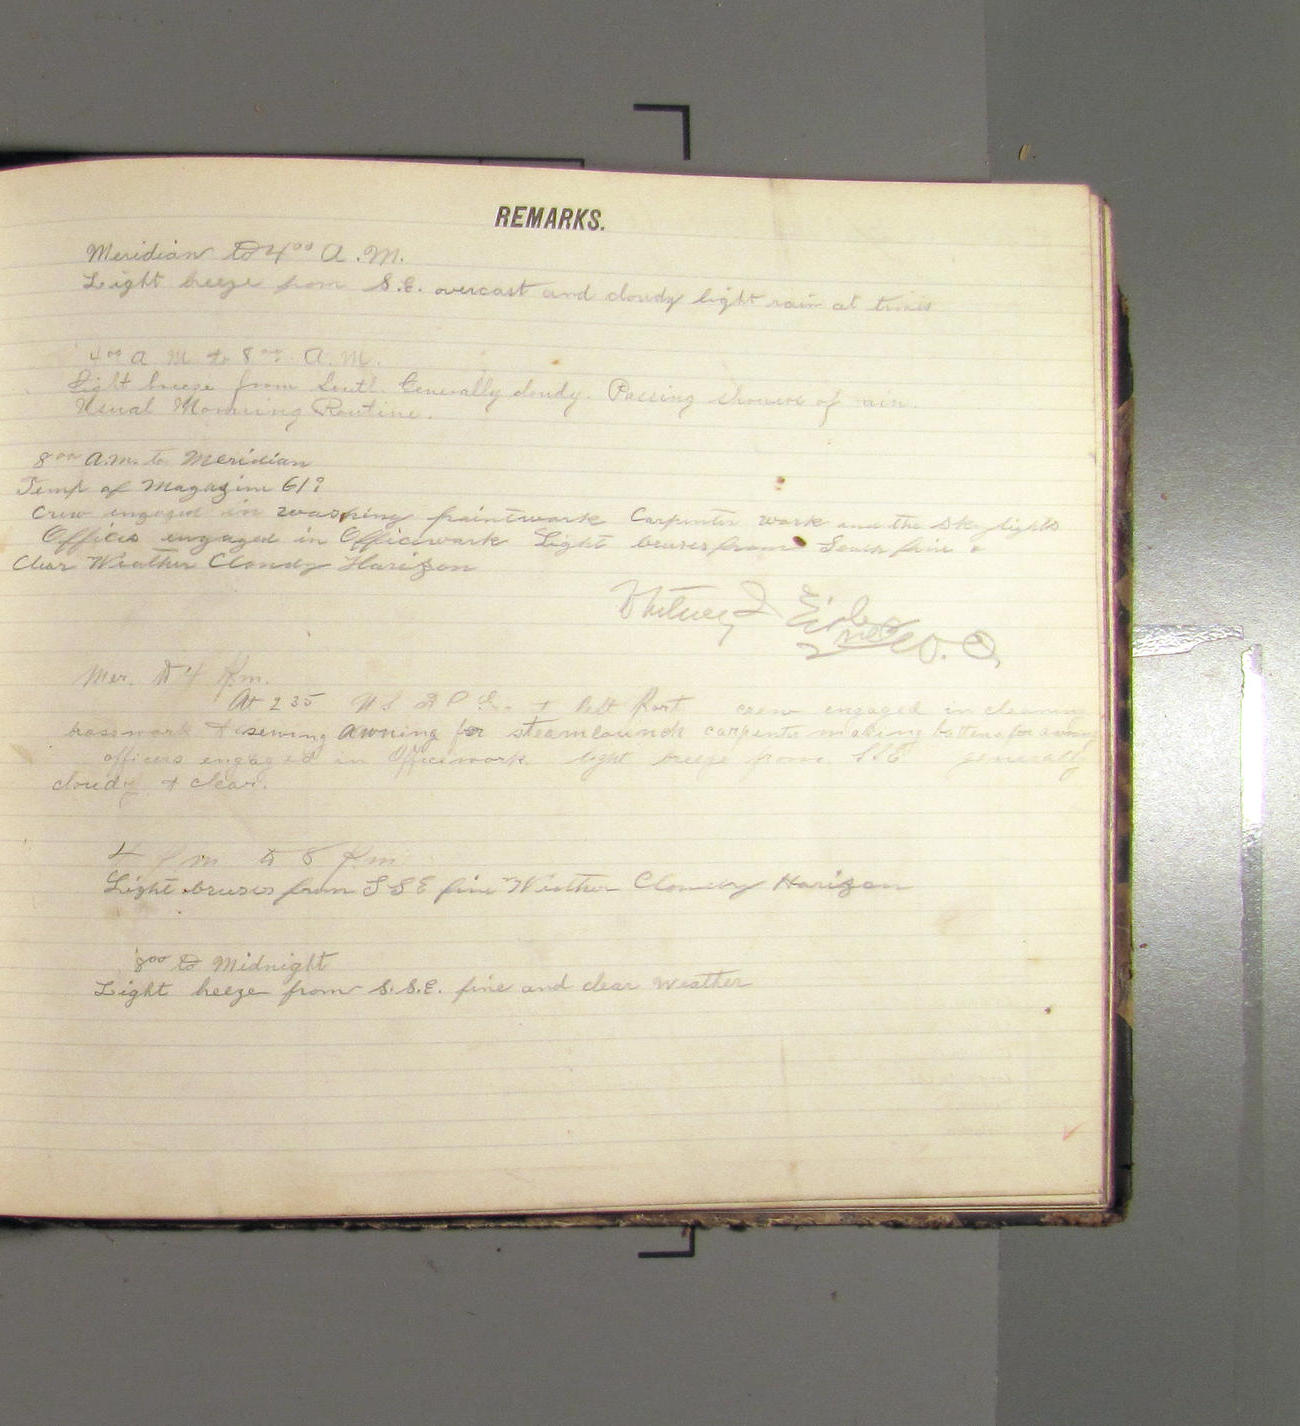 REMARKS.
Meridian to 4oo A.M.
Light breeze from S.E. overcast and cloudy light rain at times
4oo A M to 8oo A.M.
Light breeze from South. Generally cloudy. Passing showers of rain.
Usual Morning Routine.
8oo A.M. to Meridian
Temp of Magazine 61°
Crew engaged in washing paintwork Carpenter work and the Skylights
Offices engaged in Officework Light breeses from South fine &
Clear Weather Cloudy Horizon
Whitney I
W.O.
Mer. to 4 P.m.
At 2 35 left Port crew engaged in cleaning
brasswork & sewing awning for steamlaunch carpenter making battens for awning
officers engaged in Officework light breeze from S.S.E generally
cloudy & clear.
4 P m to 8 P.m
Light breeses from S S E fine Weather Cloudy Horizon
8oo to Midnight
Light breeze from S.S.E. fine and clear weather